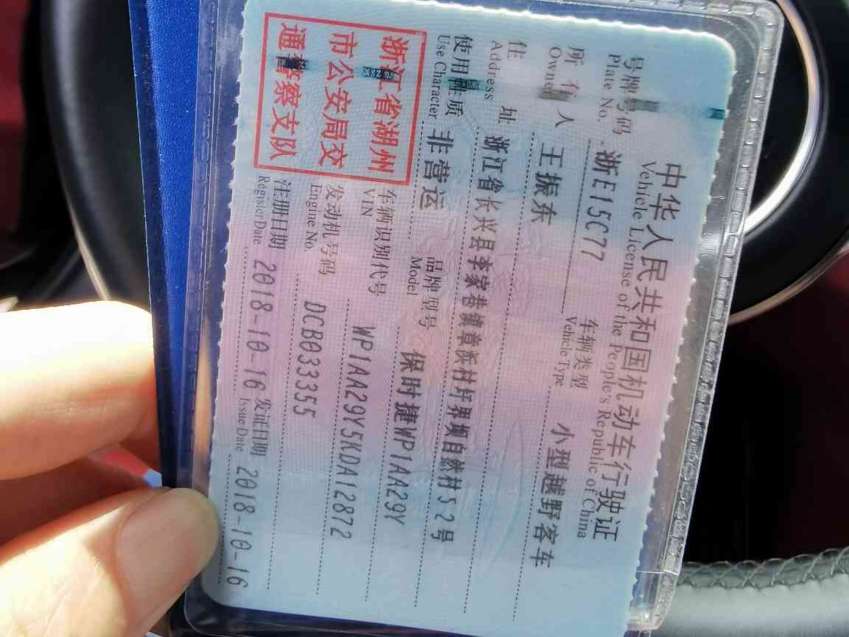 中华人民共和国机动车行驶证
Vehicle License of the People's Republic of China
号牌号码 浙E15C77 车辆类型 小型越野客车
Plate No. Vehicle Type
所有人 王振东
Owner
住址 浙江省长兴县李家巷镇章浜村圩界坝自然村52号
Address
使用性质 非营运 品牌型号 保时捷WP1AA29Y
Use Character Model
浙江省湖州
市公安局交
通警察支队
车辆识别代号 WP1AA29Y5KDA12872
VIN
发动机号码 DCB033355
Engine No.
注册日期 2018-10-16 发证日期 2018-10-16
Register Date Issue Date